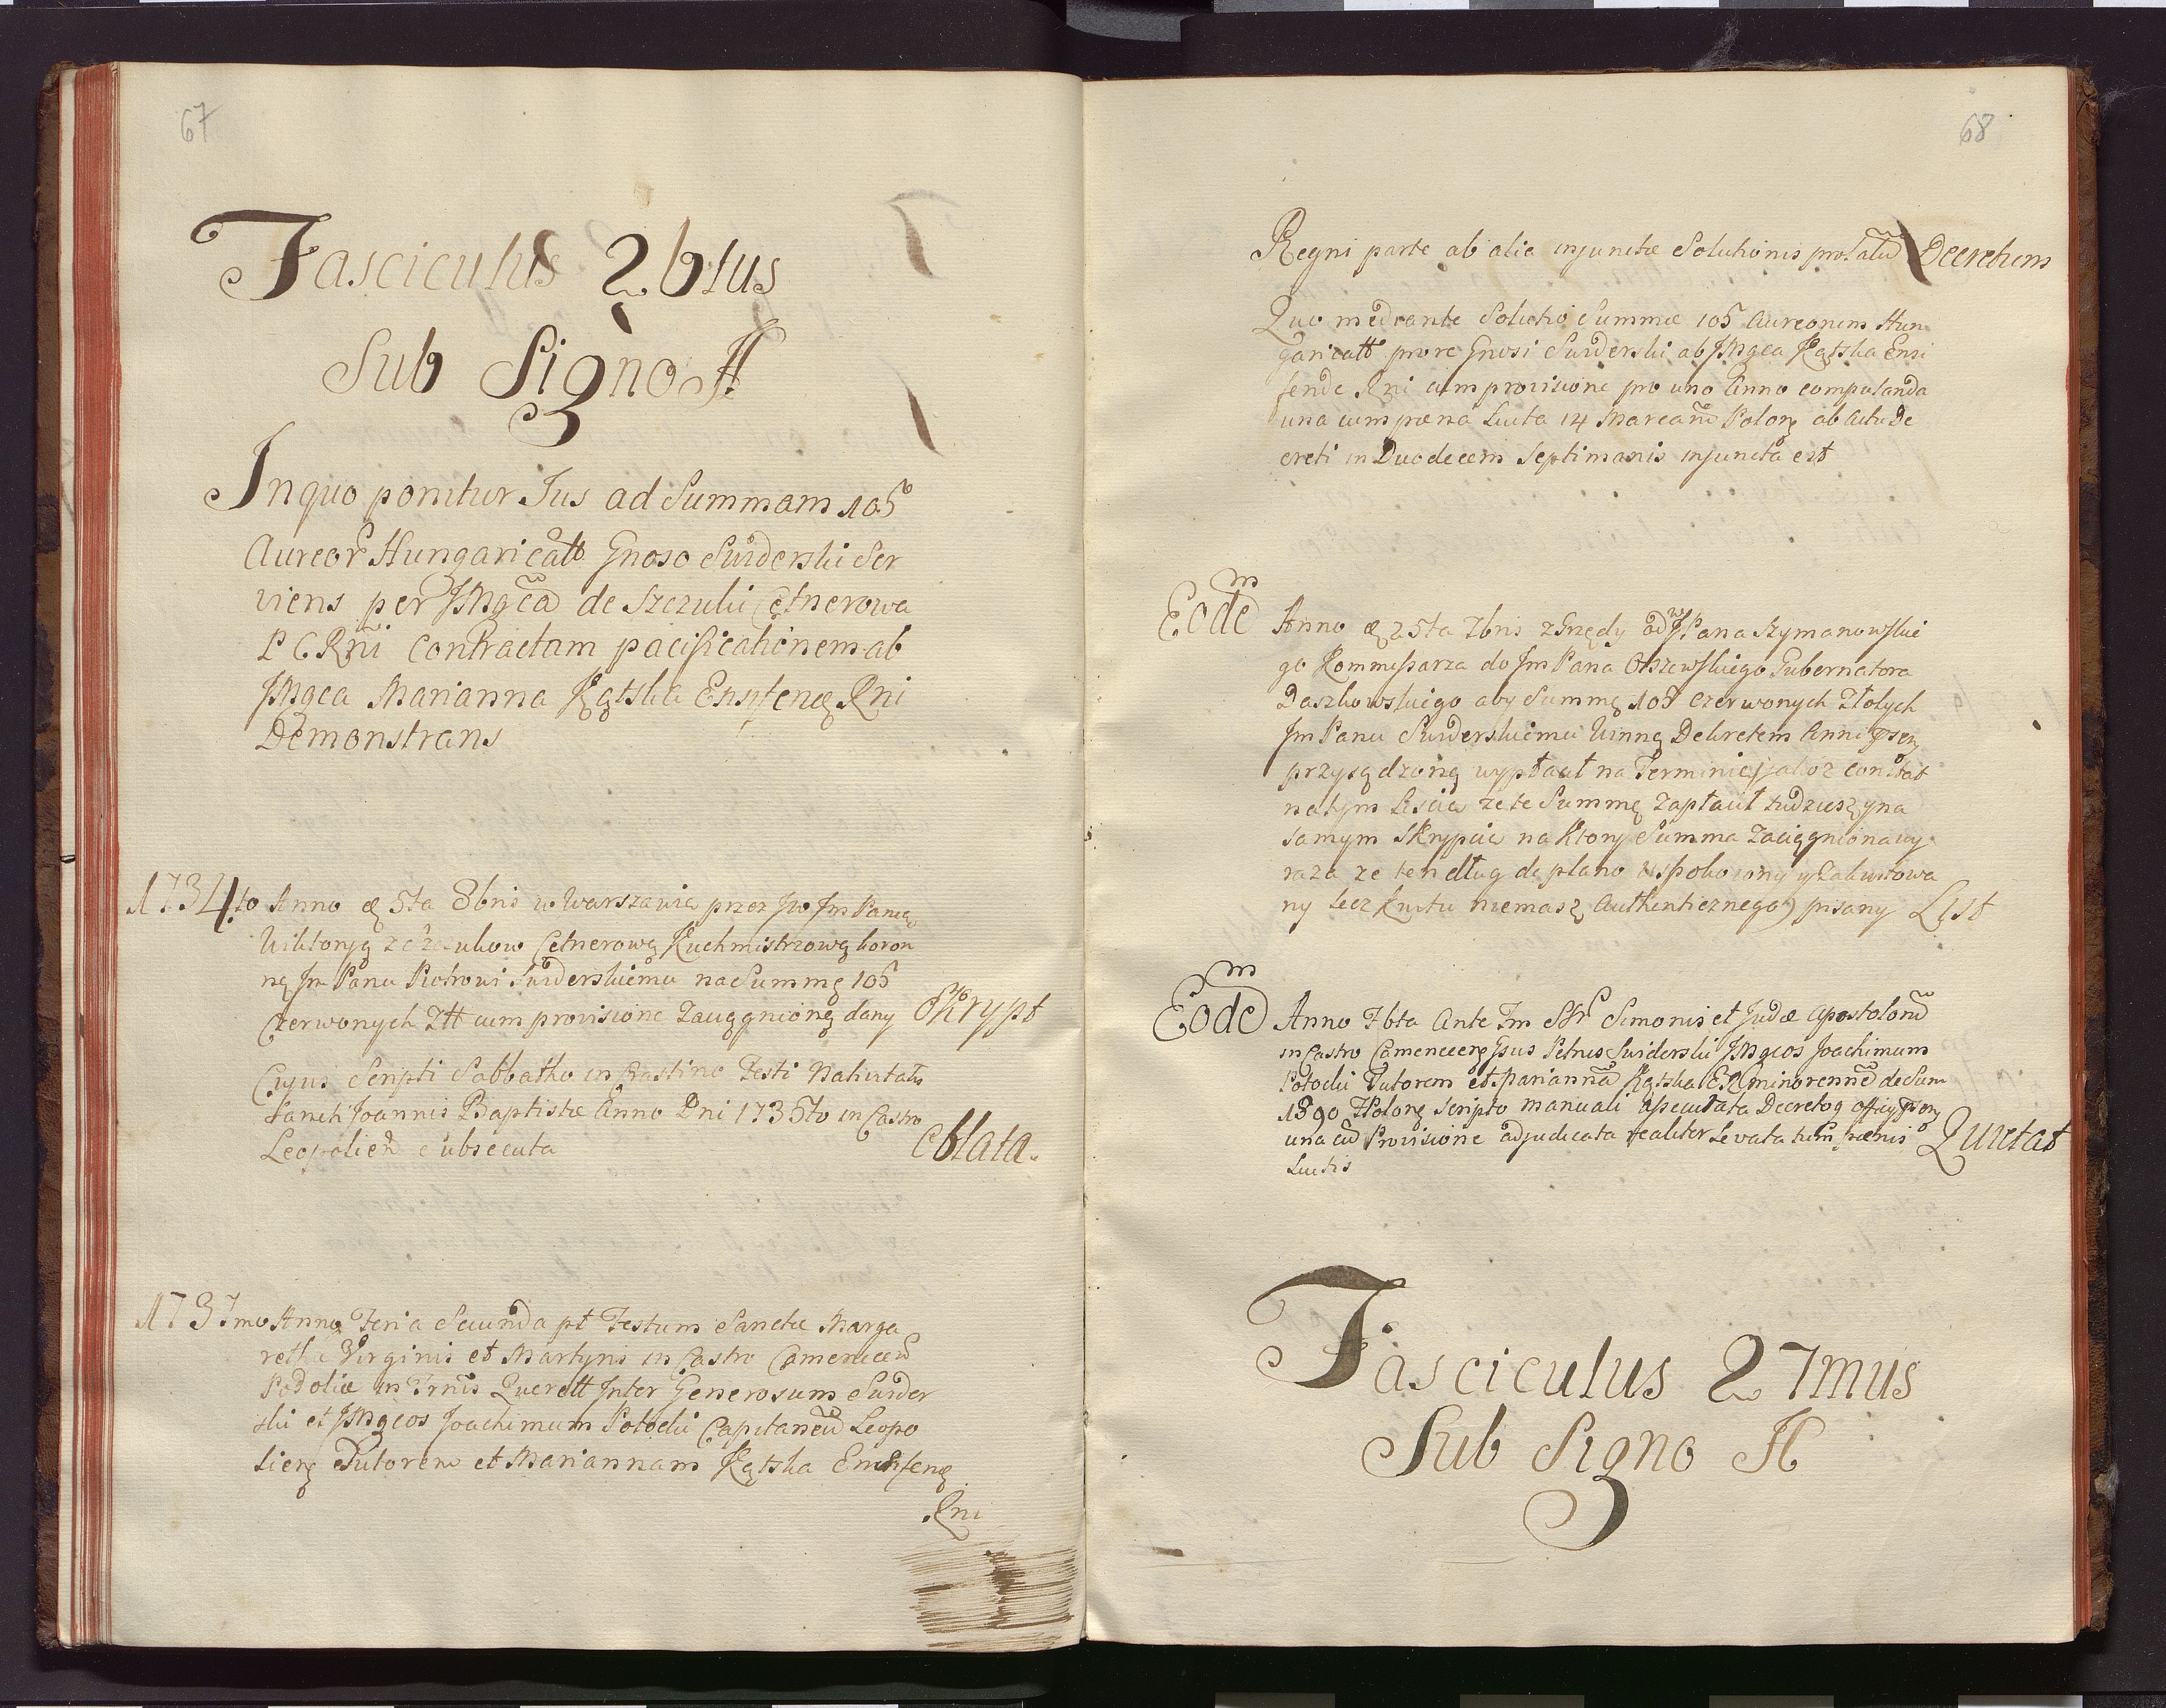 67
Fasciculus 26tus
Sub Signo H
In quo ponitur Jus ad Summam 105
Aureor Hungaricatt Gnoso Swiderski Ser
viens per JMgca de Szczuki Cetnerowa
P C Rni Contractam pacificationem ab
JMgca Marianna Kątska Ensifenę Rni
Demonstrans
1734to Anno æ 5ta 8bris w Warszawie przez Jw Jm Panią
Wiktoryą z Cetnerową Kuchmistrzową koron
ną Jm Panu Piotrowi Swiderskiemu na Summę 105
Czerwonych Ztt cum provisione Zaciągnioną dany Skrypt
Cujus Scripti Sabbatho in Crastino Festi Nativitatis
Sancti Joannis Baptistæ Anno Dni 1735to in Castro
Leopolien Subsecuta Oblata.
1737mo Anno Feria Secunda pt Festum Sanctæ Marga
rethæ Virginis et Martyris in Castro Camenecen
Podoliæ in Trnis Querell Inter Generosum Swider
ski et JMgcos Joachimum Potocki Capitaneū Leopo
lienę Tutorem et Mariannam Kątska Ensifenę
Rni
68
Regni parte ab alia injunctæ Solutionis prolatū Decretum
Quo mediante Solutio Summæ 105 Aureorum Hun
garicatt prore Gnosi Swiderski ab JMgca Kątska Ensi
fende Rni cum provisione pro uno Anno computanda
una cum pæna Lucta 14 Marcarū Polonę ab Actu De
creti in Duodecem Septimanis injuncta est
Eodem Anno æ 25ta 7bris z Grzędy od JPana Szymanowskie
go Kommissarza do Jm Pana Olszewskiego Gubernatora
Daszkowskiego aby Summę 105 Czerwonych Złotych
Jm Panu Swiderskiemu Winną Dekretem Anni psen
przysądzoną wypłacił na Terminie jakoż constat
na tym Liscie ze te Summę Zapłacił tudziesz y na
samym Skrypcie na ktory Summa Zaciągniona wy
raza ze ten dług de plano uspokoiony y zakwitowa
ny lecz kwitu niemasz Authentycznego) pisany List
Eodem Anno 7bta Ante Fm SSr Simonis et Judæ Apostolorū
in Castro Camenecenę Gsus Petrus Swiderski JMgcos Joachimum
Potocki Tutorem et Mariannā Kątska E R minorennē de Sum
1890 Polonę Scripto manuali Decretoq Officy psenę
una cū Provisione adjudicata realiter Levata tum pænis Quietat
Luctis
Fasciculus 27mus
Sub Signo H